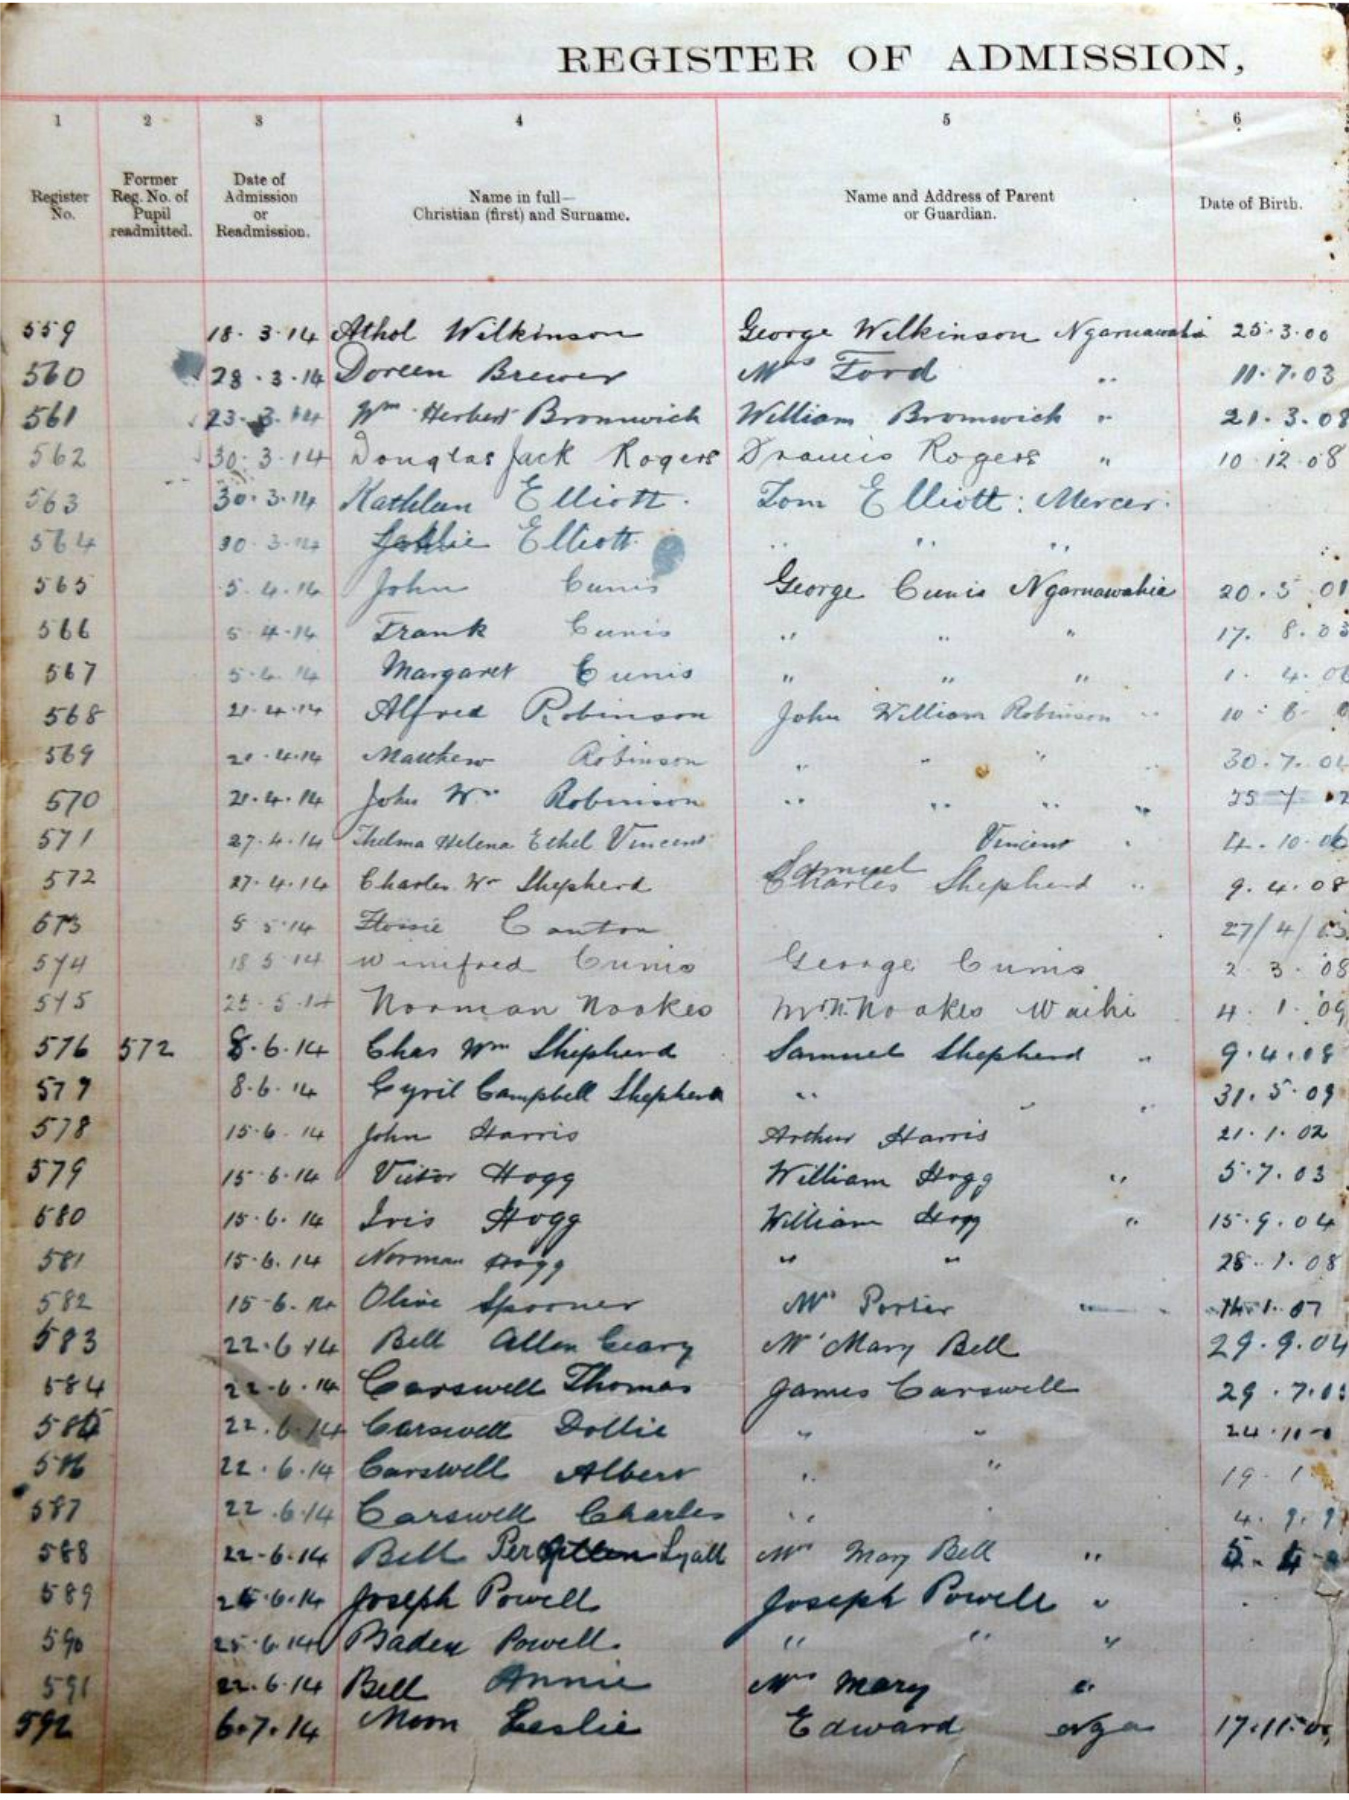 REGISTER OF ADMISSION,
1 2 3 4 5 6
Register No. Former Reg. No. of Pupil readmitted. Date of Admission or Readmission. Name in full— Christian (first) and Surname. Name and Address of Parent or Guardian. Date of Birth.
559 18. 3. 14 Athol Wilkinson George Wilkinson Ngaruawahia 25. 3. 00
560 28. 3. 14 Doreen Brewer Mrs Ford " 11. 7. 03
561 23. 3. 14 Wm Herbert Bromwich William Bromwich " 21. 3. 08
562 30. 3. 14 Douglas Jack Rogers Francis Rogers " 10. 12. 08
563 30. 3. 14 Kathleen Elliott. Tom Elliott: Mercer.
564 30. 3. 14 Elliott. " " "
565 5. 4. 14 John Cunis George Cunis Ngaruawahia 20. 5. 01
566 5. 4. 14 Frank Cunis " " " 17. 8. 03
567 5. 4. 14 Margaret Cunis " " " 1. 4. 06
568 21. 4. 14 Alfred Robinson John William Robinson " 10. 8.
569 21. 4. 14 Matthew Robinson " " " " 30. 7. 04
570 21. 4. 14 John Wm Robinson " " " "
571 27. 4. 14 Thelma Helena Ethel Vincent Vincent " 4. 10. 06
572 27. 4. 14 Charles Wm Shepherd Samuel Charles Shepherd " 9. 4. 08
573 5 5 14 Flossie Canton 27/4/03
574 18 5 14 Winifred Cunis George Cunis 2. 3. 08
575 25. 5. 14 Norman Noakes Noakes Waihi 4. 1. 09
576 572 8. 6. 14 Chas Wm Shepherd Samuel Shepherd " 9. 4. 08
577 8. 6. 14 Cyril Campbell Shepherd " " " 31. 5. 09
578 15. 6. 14 John Harris Arthur Harris 21. 1. 02
579 15. 6. 14 Victor Hogg William Hogg " 5. 7. 03
580 15. 6. 14 Iris Hogg William Hogg " 15. 9. 04
581 15. 6. 14 Norman Hogg " " 28. 1. 08
582 15. 6. 14 Olive Spooner Mrs Porter 14. 1. 07
583 22. 6. 14 Bell Allen Geary Mrs Mary Bell 29. 9. 04
584 22. 6. 14 Carswell Thomas James Carswell 29. 7.
585 22. 6. 14 Carswell Dollie " " 24. 11.
586 22. 6. 14 Carswell Albert " " 19. 1
587 22. 6. 14 Carswell Charles " " 4. 9.
588 22. 6. 14 Bell Percy Lyall Mrs Mary Bell "
589 25. 6. 14 Joseph Powell Joseph Powell "
590 25. 6. 14 Baden Powell. " " "
591 22. 6. 14 Bell Annie Mrs Mary "
592 6. 7. 14 Moon Leslie Edward Nga 17. 11.